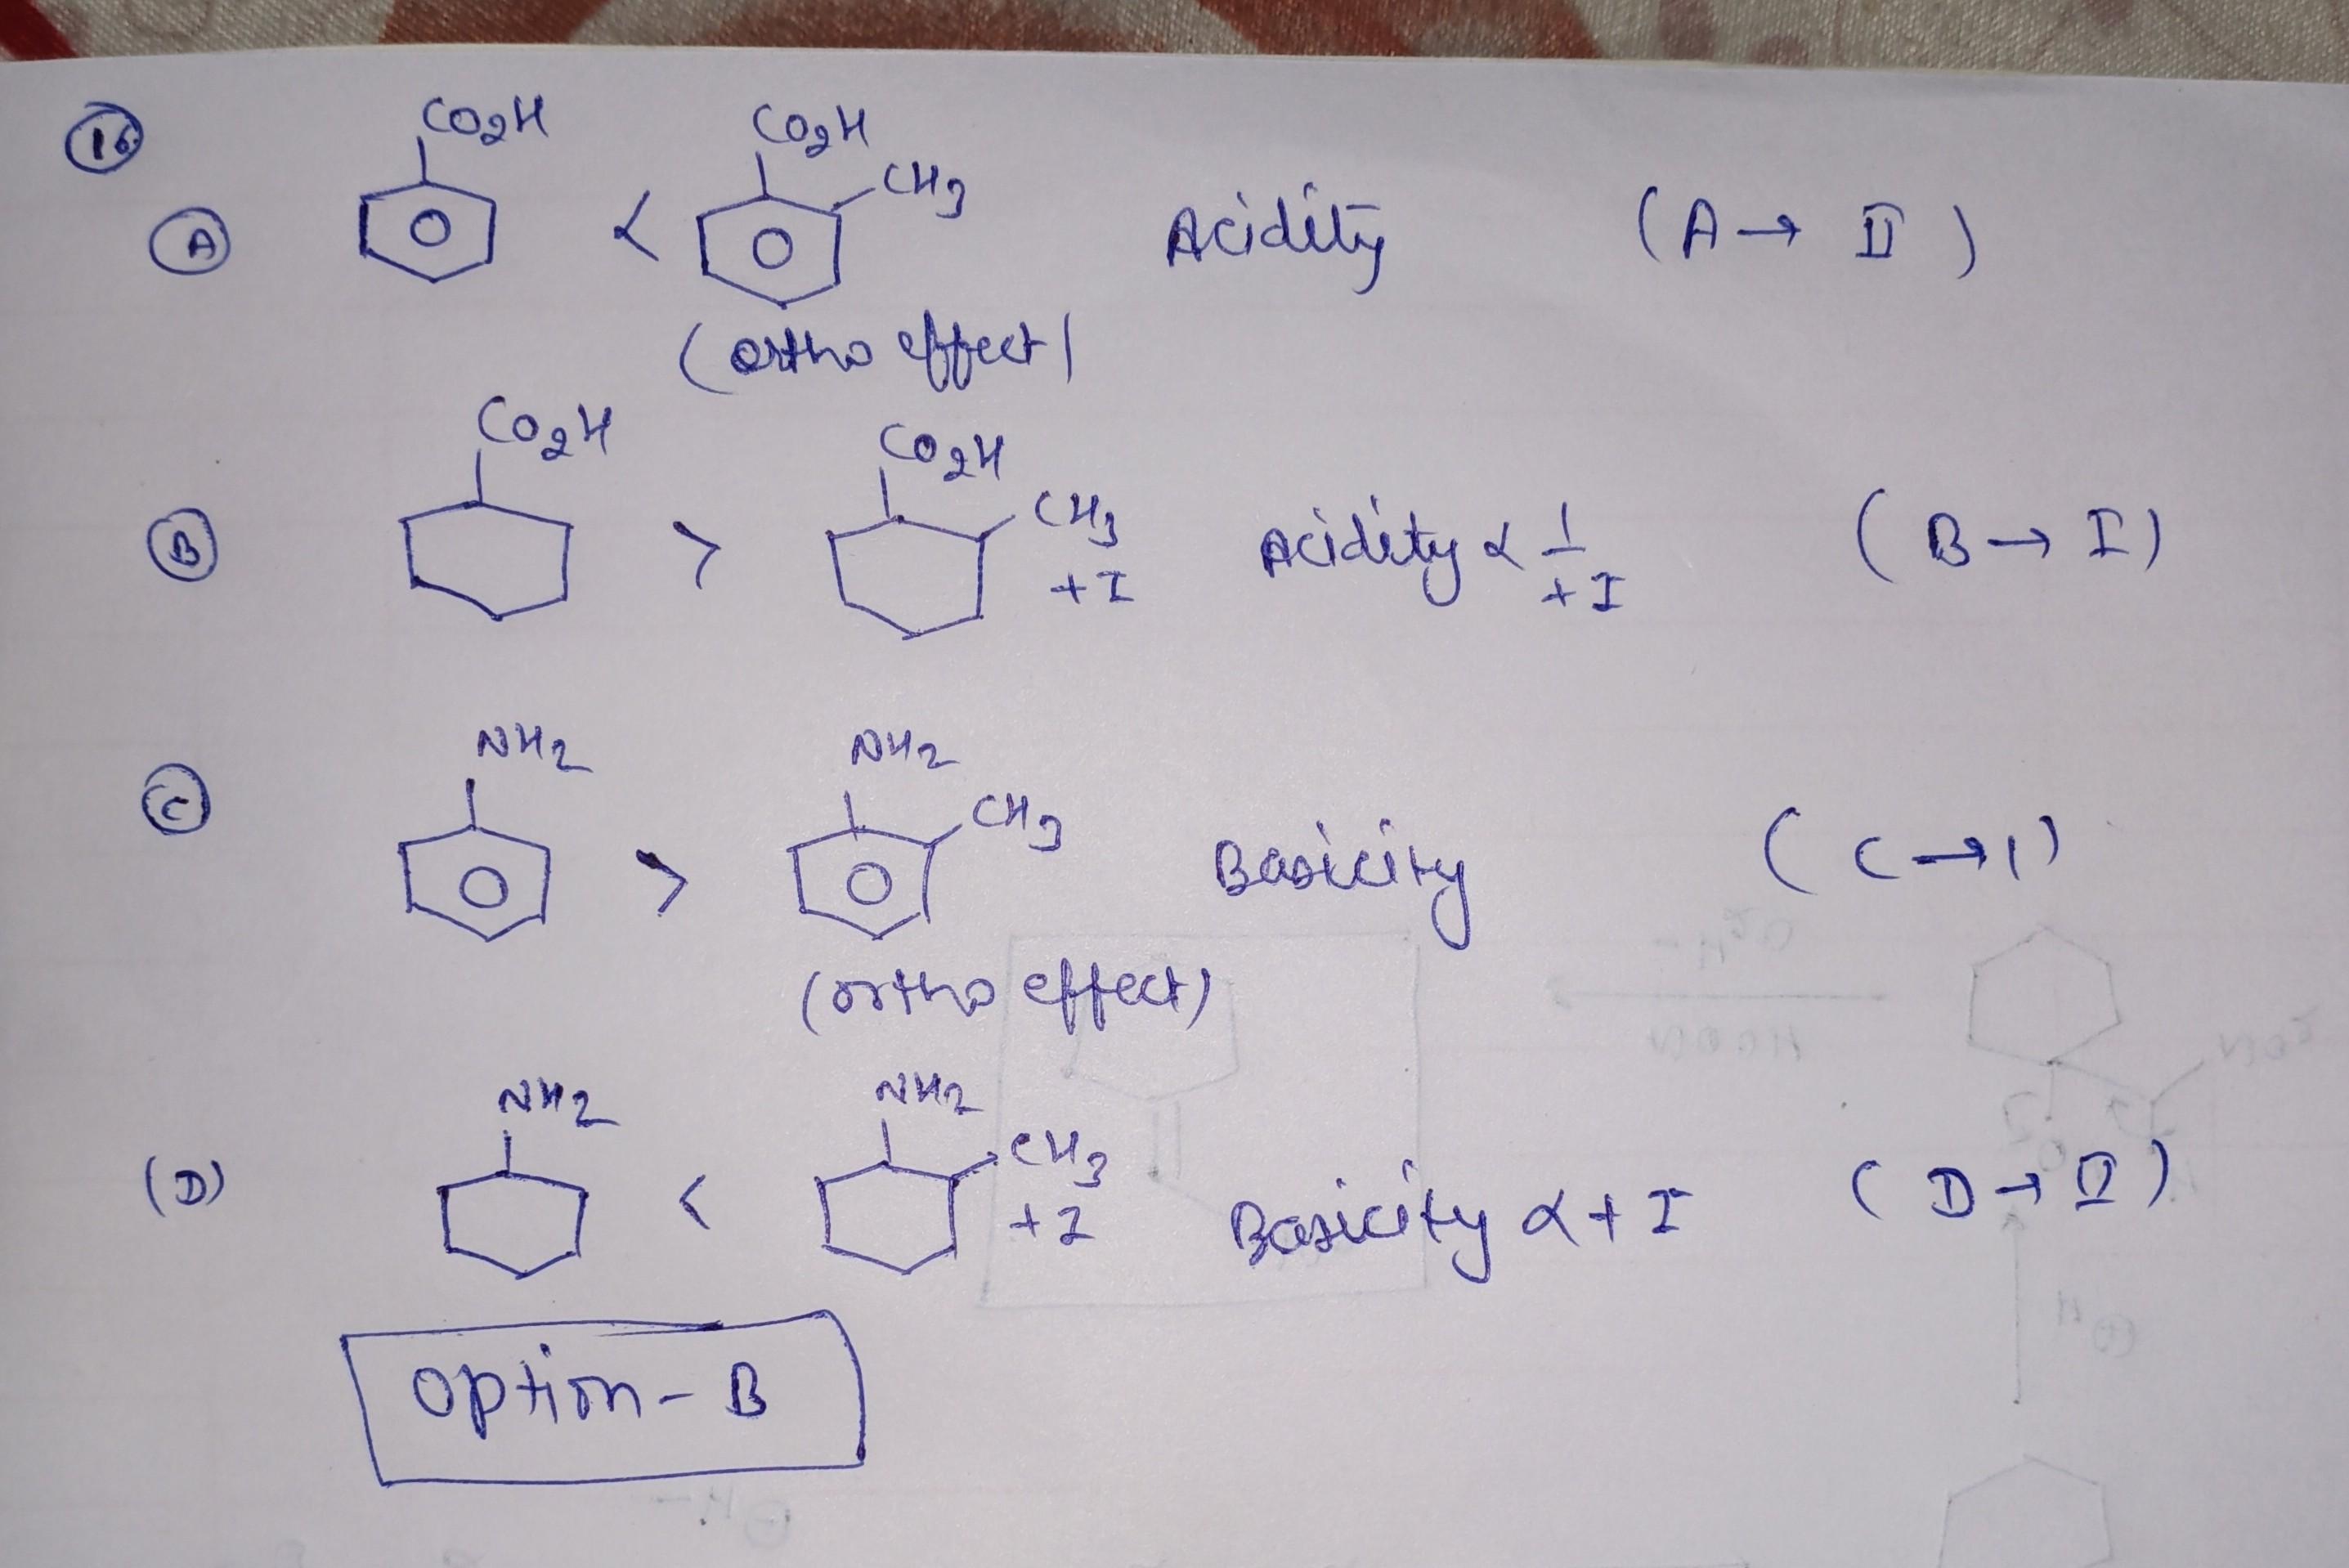 16
CO2H CO2H
CH3
A < Acidity (A → II)
(ortho effect)
CO2H CO2H
CH3
B > Acidity ∝ 1/+I (B → I)
+I
NH2 NH2
CH3
C > Basicity (C → I)
(ortho effect)
NH2 NH2
CH3
(D) < +I Basicity ∝ + I (D → II)
Option - B